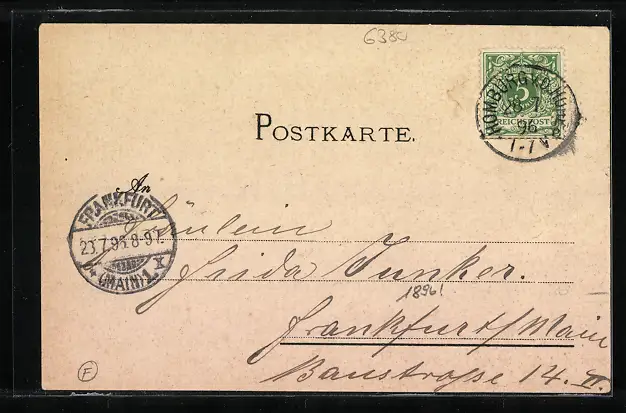 6380
5
REICHSPOST
HOMBURG v.d. HÖHE
7
96
POSTKARTE.
An
Fräulein
Frida Junker.
FRANKFURT
23.7.96.8-9V.
(MAIN) 1.
1896!
Frankfurt/Main
Baustrasse 14. II.
F